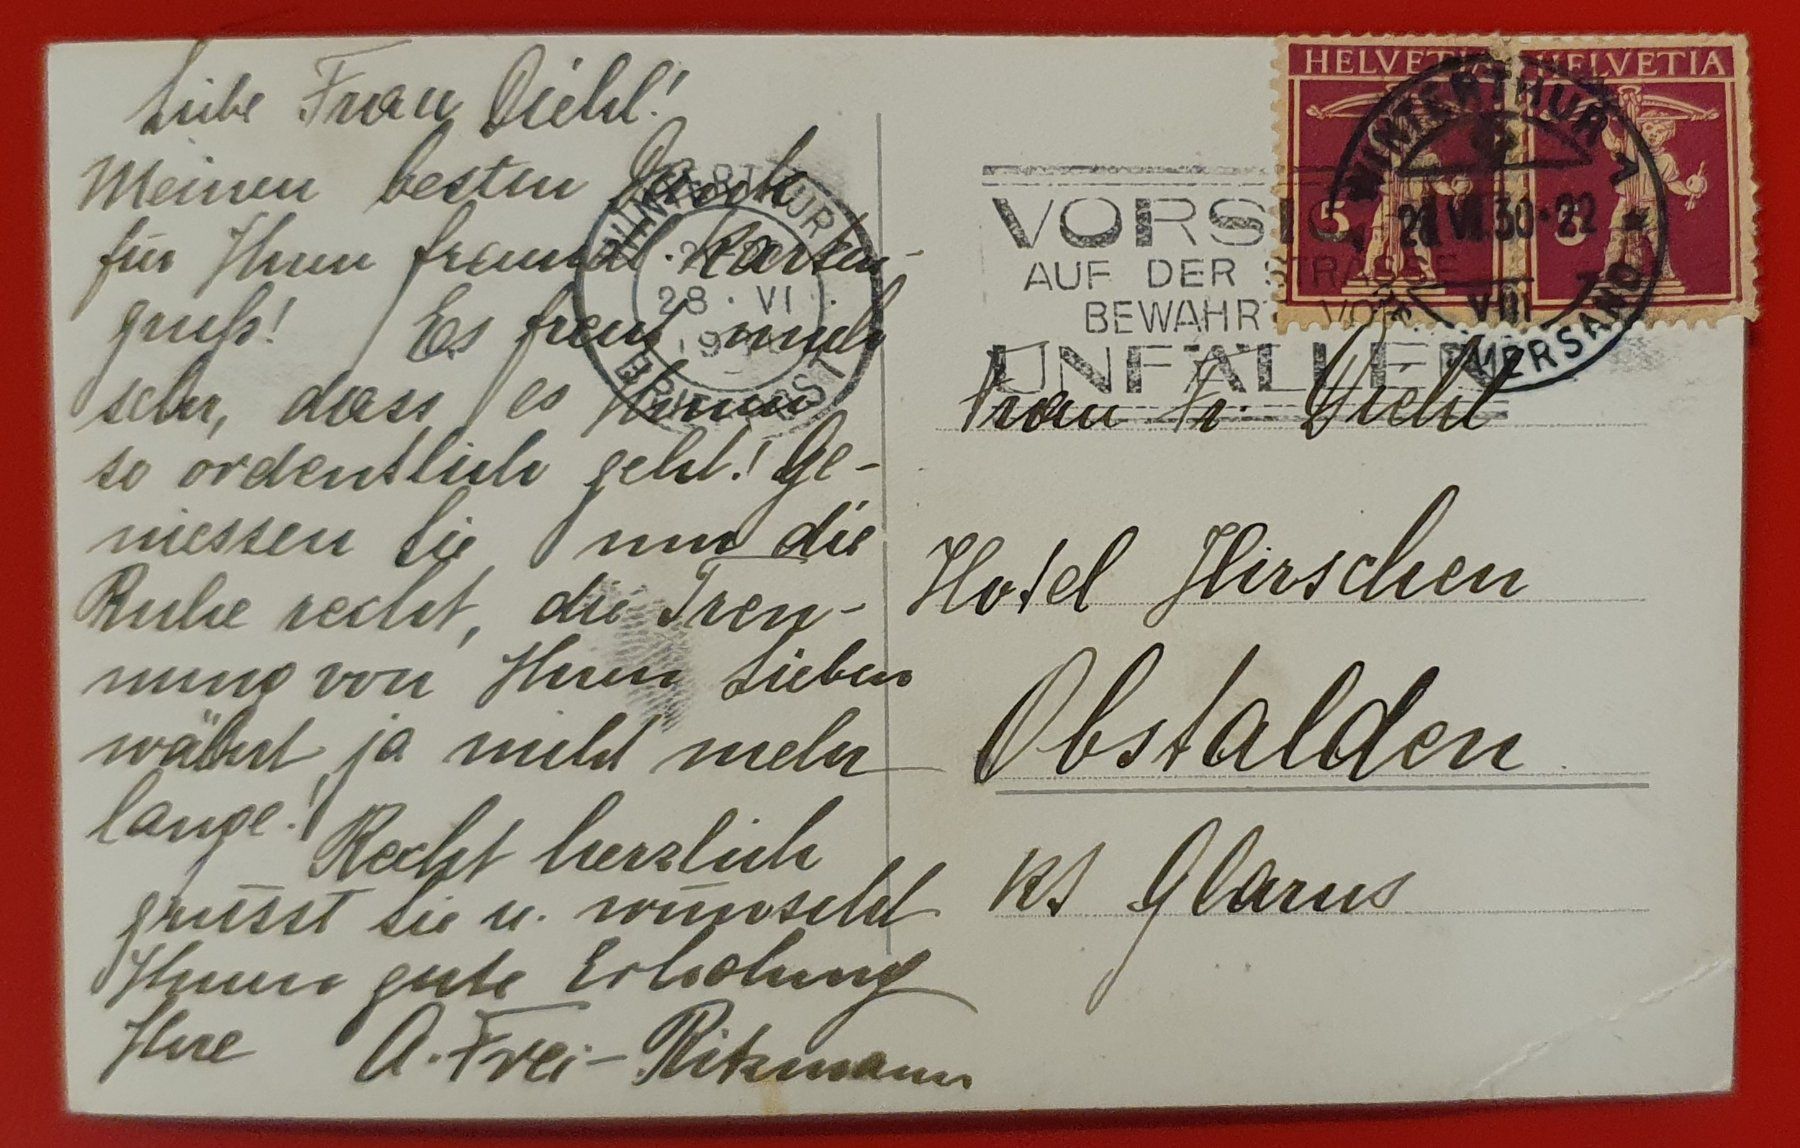 Liebe Frau Diehl!
Meinen besten Dank
für Ihren freundl. Karten-
gruß! Es freut mich
sehr, dass es Ihnen
so ordentlich geht! Ge-
niessen Sie nur die
Ruhe recht, die Tren-
nung von Ihren Lieben
währt ja nicht mehr
lange! Recht herzlich
grüsst Sie u. wünscht
Ihnen gute Erholung
Ihre A. Frei-Ritzmann
WINTERTHUR
28. VI
BRIEFPOST
VORSIC
AUF DER STRASSE
BEWAHRT VOR
UNFÄLLEN
HELVETIA HELVETIA
5 5
WINTERTHUR 1
VI. 30-22
VIII
VERSAND
Frau Fr. Diehl
Hotel Hirschen
Obstalden
Kt Glarus